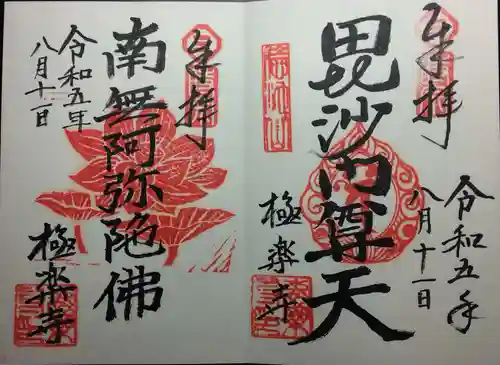 奉拝
毘沙門尊天
令和五年
八月十一日
極楽寺
奉拝
南無阿弥陀佛
令和五年
八月十一日
極楽寺